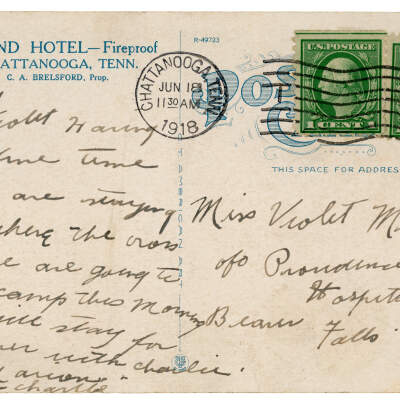 ND HOTEL—Fireproof
HATTANOOGA, TENN.
C. A. BRELSFORD, Prop.
R-49723
CHATTANOOGA, TENN.
JUN 18
11 30 AM
1918
U.S. POSTAGE
1 CENT 1
POS
THIS SPACE FOR ADDRES
Violet Having
fine time
are staying
where the cross
e are going to
camp this morning
will stay for
er with charlie.
Miss Violet M
o/o Providence
Hospit
Beaver
Falls